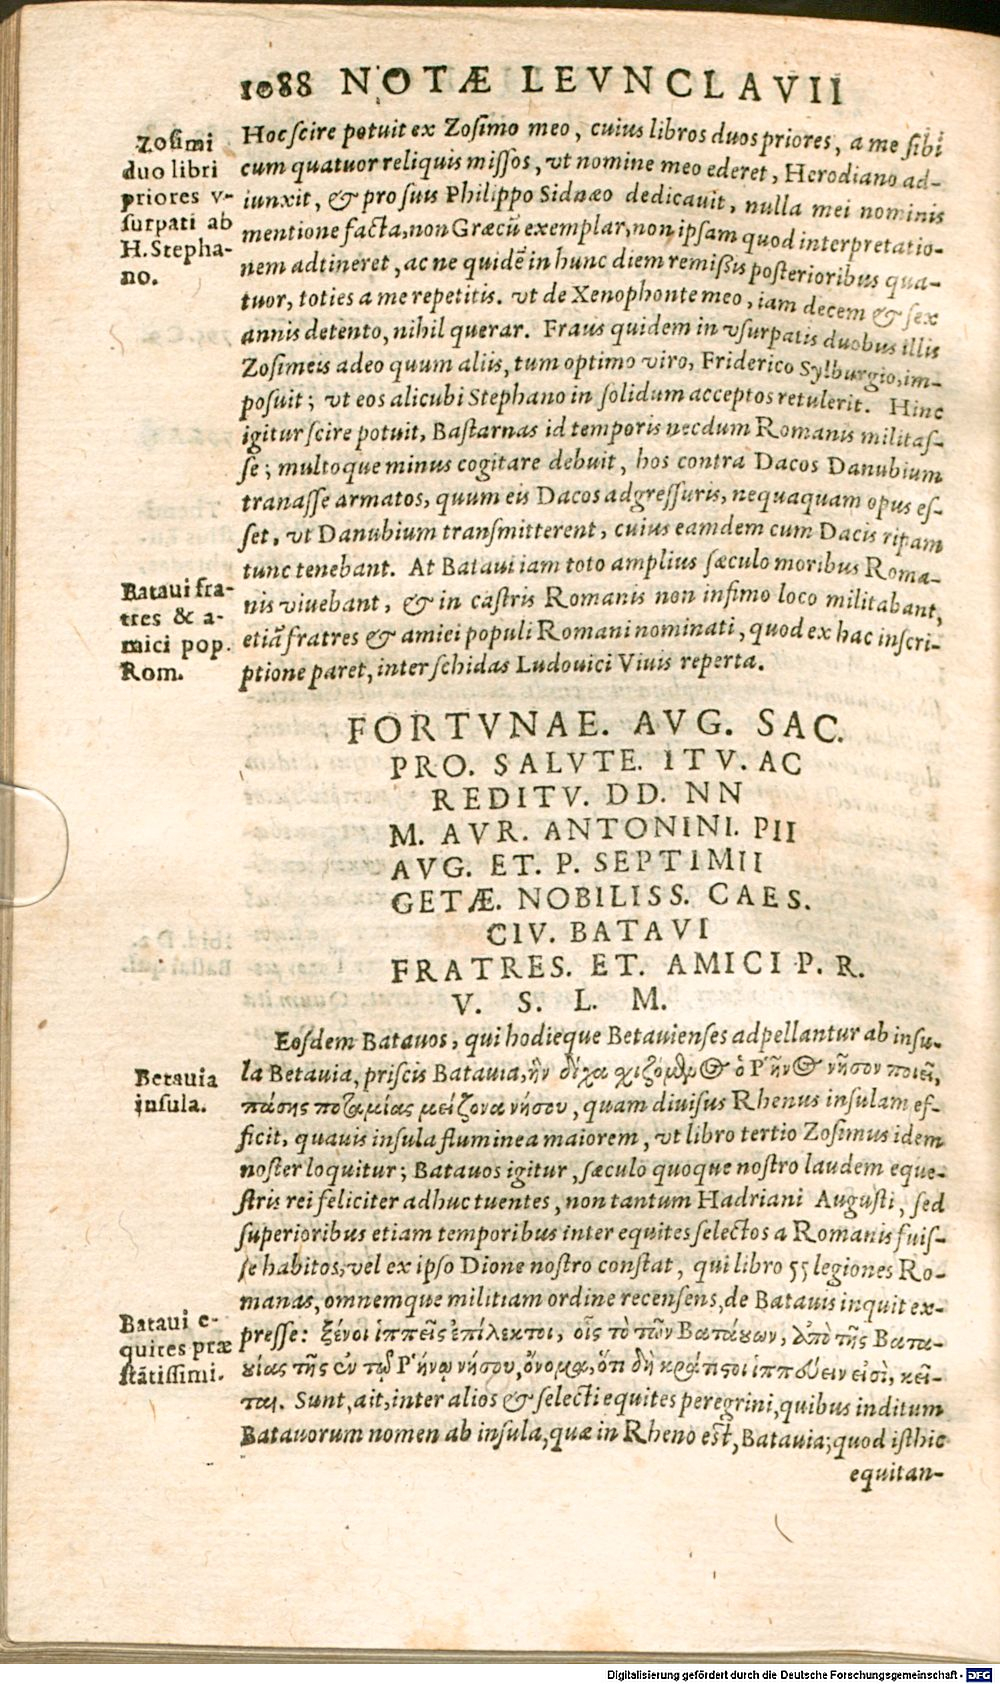 1088 NOTÆ LEVNCLAVII
Zosimi
duo libri
priores v-
surpati ab
H. Stepha-
no.
Hoc scire potuit ex Zosimo meo, cuius libros duos priores, a me sibi
cum quatuor reliquis missos, vt nomine meo ederet, Herodiano ad-
iunxit, & pro suis Philippo Sidnæo dedicauit, nulla mei nominis
mentione facta, non Græcū exemplar, non ipsam quod interpretatio-
nem adtineret, ac ne quidē in hunc diem remißis posterioribus qua-
tuor, toties a me repetitis. vt de Xenophonte meo, iam decem & sex
annis detento, nihil querar. Fraus quidem in vsurpatis duobus illis
Zosimeis adeo quum aliis, tum optimo viro, Friderico Sylburgio, im-
posuit; vt eos alicubi Stephano in solidum acceptos retulerit. Hinc
igitur scire potuit, Bastarnas id temporis necdum Romanis militas-
se; multoque minus cogitare debuit, hos contra Dacos Danubium
tranasse armatos, quum eis Dacos adgressuris, nequaquam opus es-
set, vt Danubium transmitterent, cuius eamdem cum Dacis ripam
tunc tenebant. At Bataui iam toto amplius sæculo moribus Roma-
nis viuebant, & in castris Romanis non infimo loco militabant,
etiā fratres & amici populi Romani nominati, quod ex hac inscri-
ptione paret, inter schidas Ludouici Viuis reperta.
Bataui fra-
tres & a-
mici pop.
Rom.
FORTVNAE. AVG. SAC.
PRO. SALVTE. ITV. AC
REDITV. DD. NN
M. AVR. ANTONINI. PII
AVG. ET. P. SEPTIMII
GETÆ. NOBILISS. CAES.
CIV. BATAVI
FRATRES. ET. AMICI P. R.
V. S. L. M.
Eosdem Batauos, qui hodieque Betauienses adpellantur ab insu-
la Betauia, priscis Batauia, ἣν δίχα χιζόμενος ὁ Ῥῆνος νῆσον ποιεῖ,
πάσης ποταμίας μείζονα νήσου, quam diuisus Rhenus insulam ef-
ficit, quauis insula fluminea maiorem, vt libro tertio Zosimus idem
noster loquitur; Batauos igitur, sæculo quoque nostro laudem eque-
stris rei feliciter adhuc tuentes, non tantum Hadriani Augusti, sed
superioribus etiam temporibus inter equites selectos a Romanis fuis-
se habitos, vel ex ipso Dione nostro constat, qui libro 55 legiones Ro-
manas, omnemque militiam ordine recensens, de Batauis inquit ex-
presse: ξένοι ἱππεῖς ἐπίλεκτοι, οἷς τὸ τῶν Βατάυων, ἀπὸ τῆς Βατα-
υίας τῆς ἐν τῷ Ῥήνῳ νήσου, ὄνομα, ὅτι δὴ κράτιστοι ἱππεύειν εἰσὶ, κεῖ-
ται. Sunt, ait, inter alios & selecti equites peregrini, quibus inditum
Batauorum nomen ab insula, quæ in Rheno est, Batauia; quod isthic
equitan-
Betauia
insula.
Bataui e-
quites præ
stātissimi.
Digitalisierung gefördert durch die Deutsche Forschungsgemeinschaft - DFG